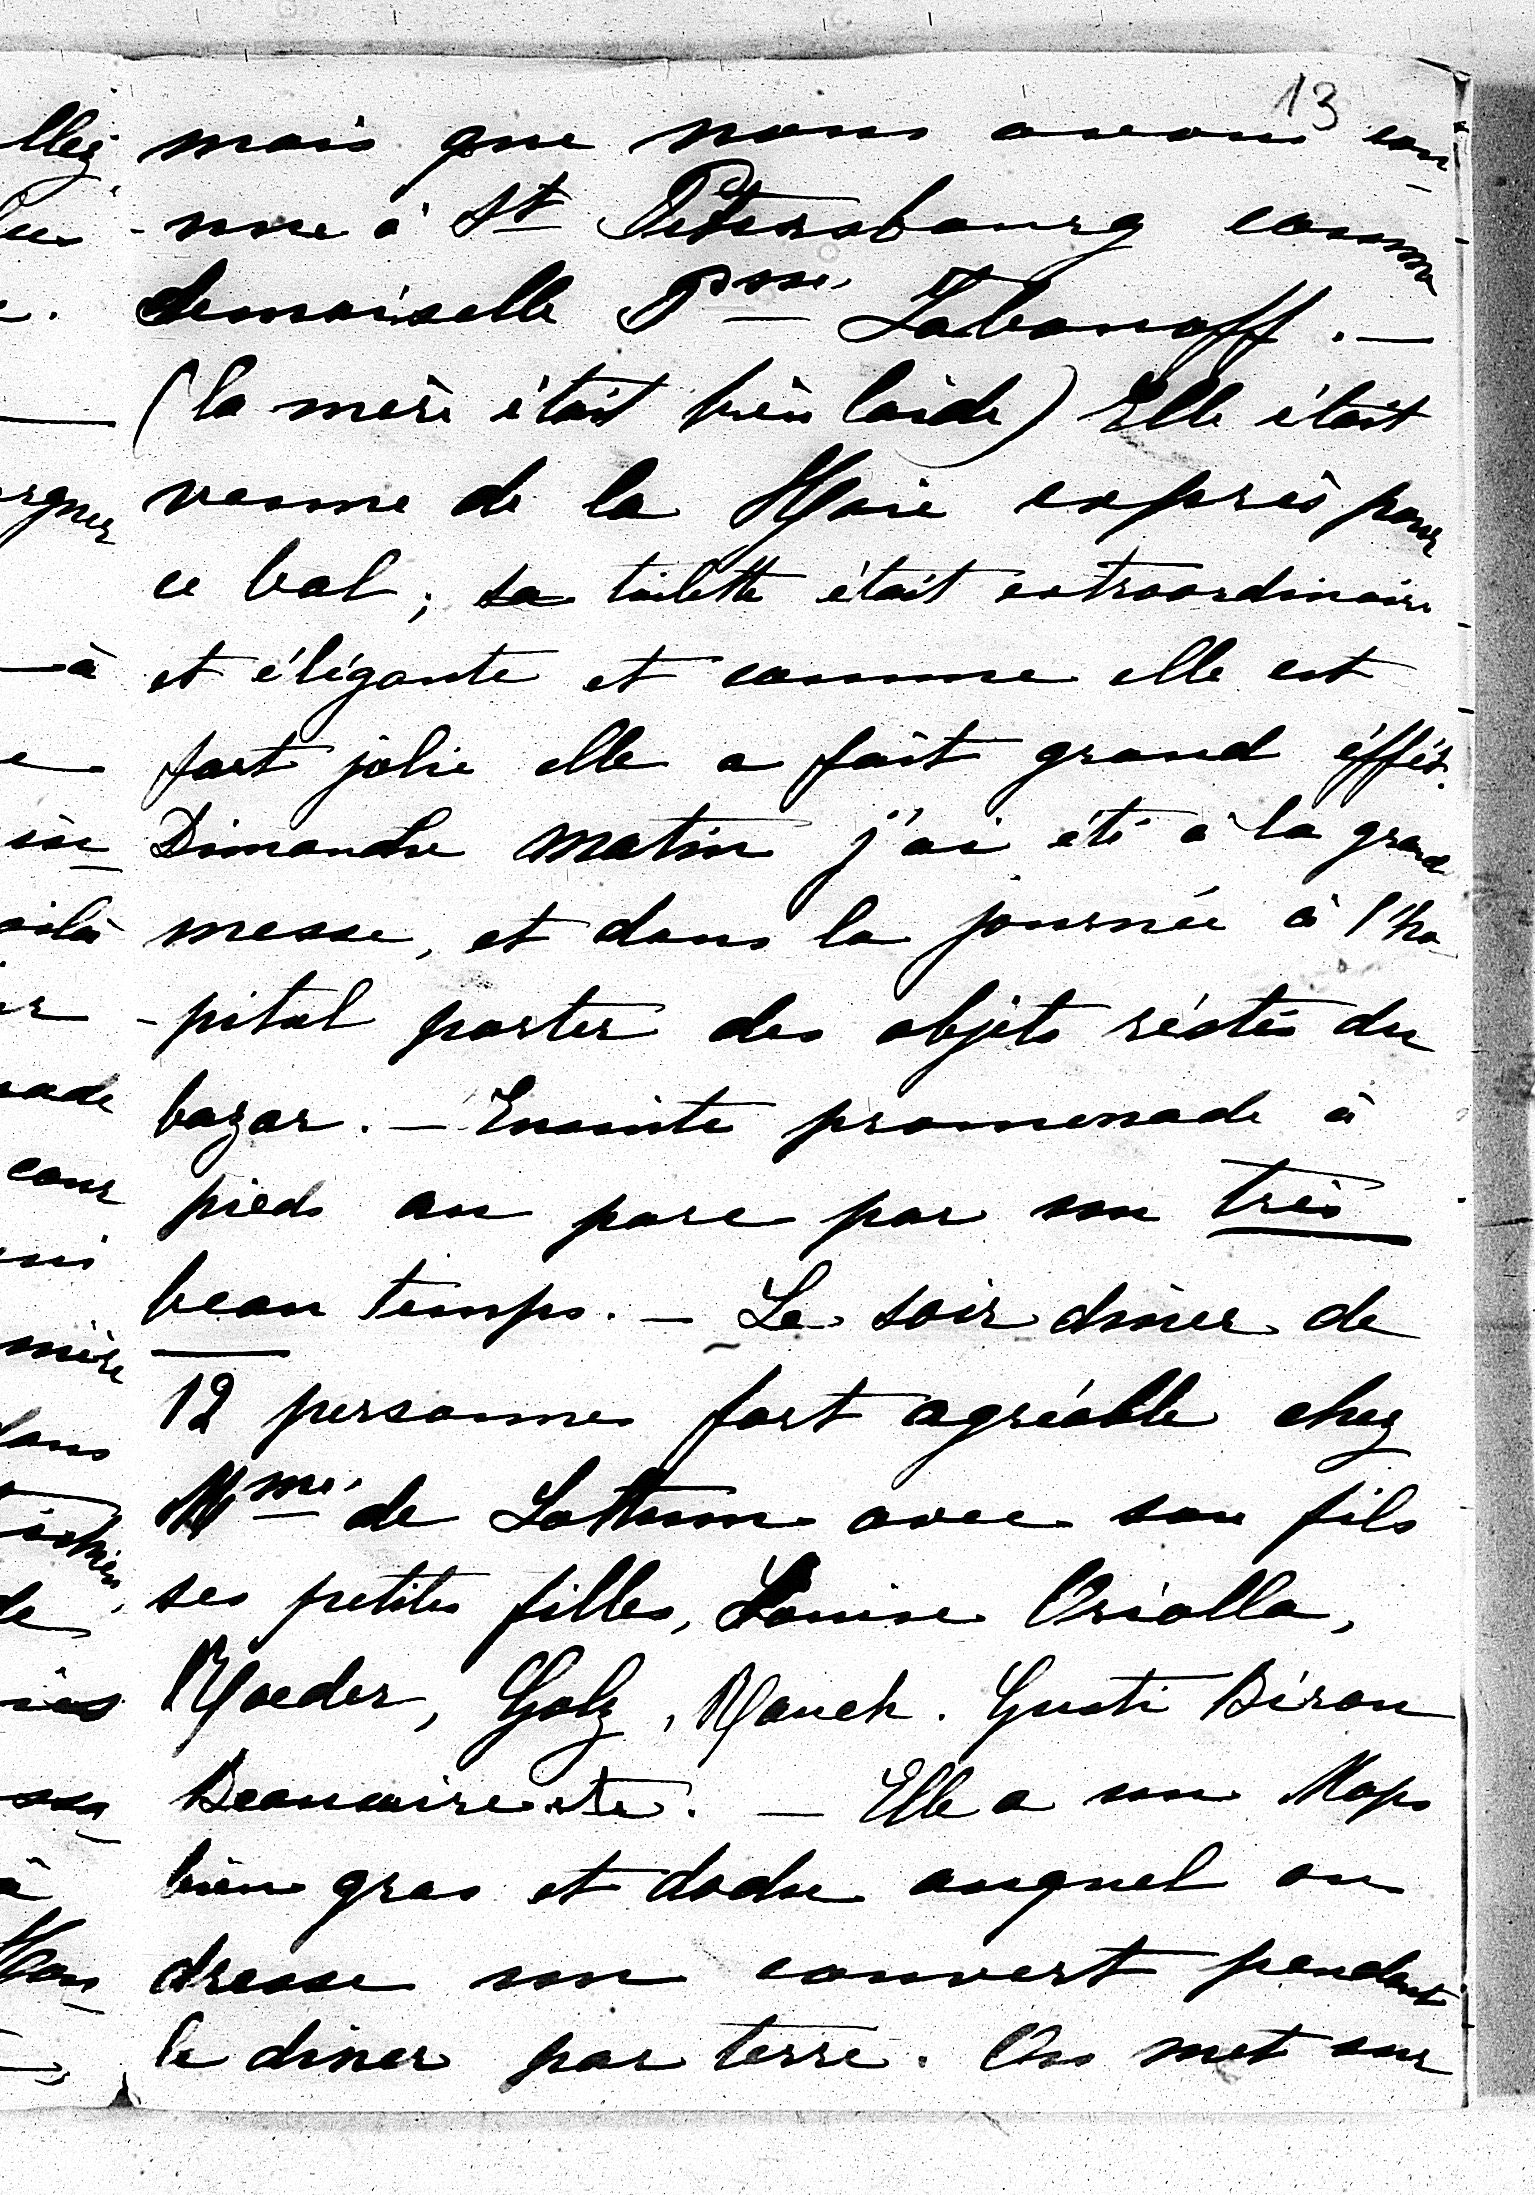 13
mais que nous avons con
-nue à St Petersbourg comme
demoiselle Psse Labanoff. —
(la mère était bien laide) Elle était
venue de la Haie exprès pour
ce bal; sa toilette était extraordinaire
et élégante et comme elle est
fort jolie elle a fait grand éffét.
Dimanche matin j'ai été à la grand
messe, et dans la journée à l'ho
-pital porter des objets réstés du
bazar. — Ensuite promenade à
pieds au parc par un très
beau temps. — Le soir diner de
12 personnes fort agréable chez
Mme de Lottum avec son fils
ses petites filles, Louise Oriolla,
Roeder, Golz, Rauch. Gusti Biron
Beaucaire etc. — Elle a un Mops
bien gras et dodu auquel on
dresse son couvert pendant
le diner par terre. On met sur